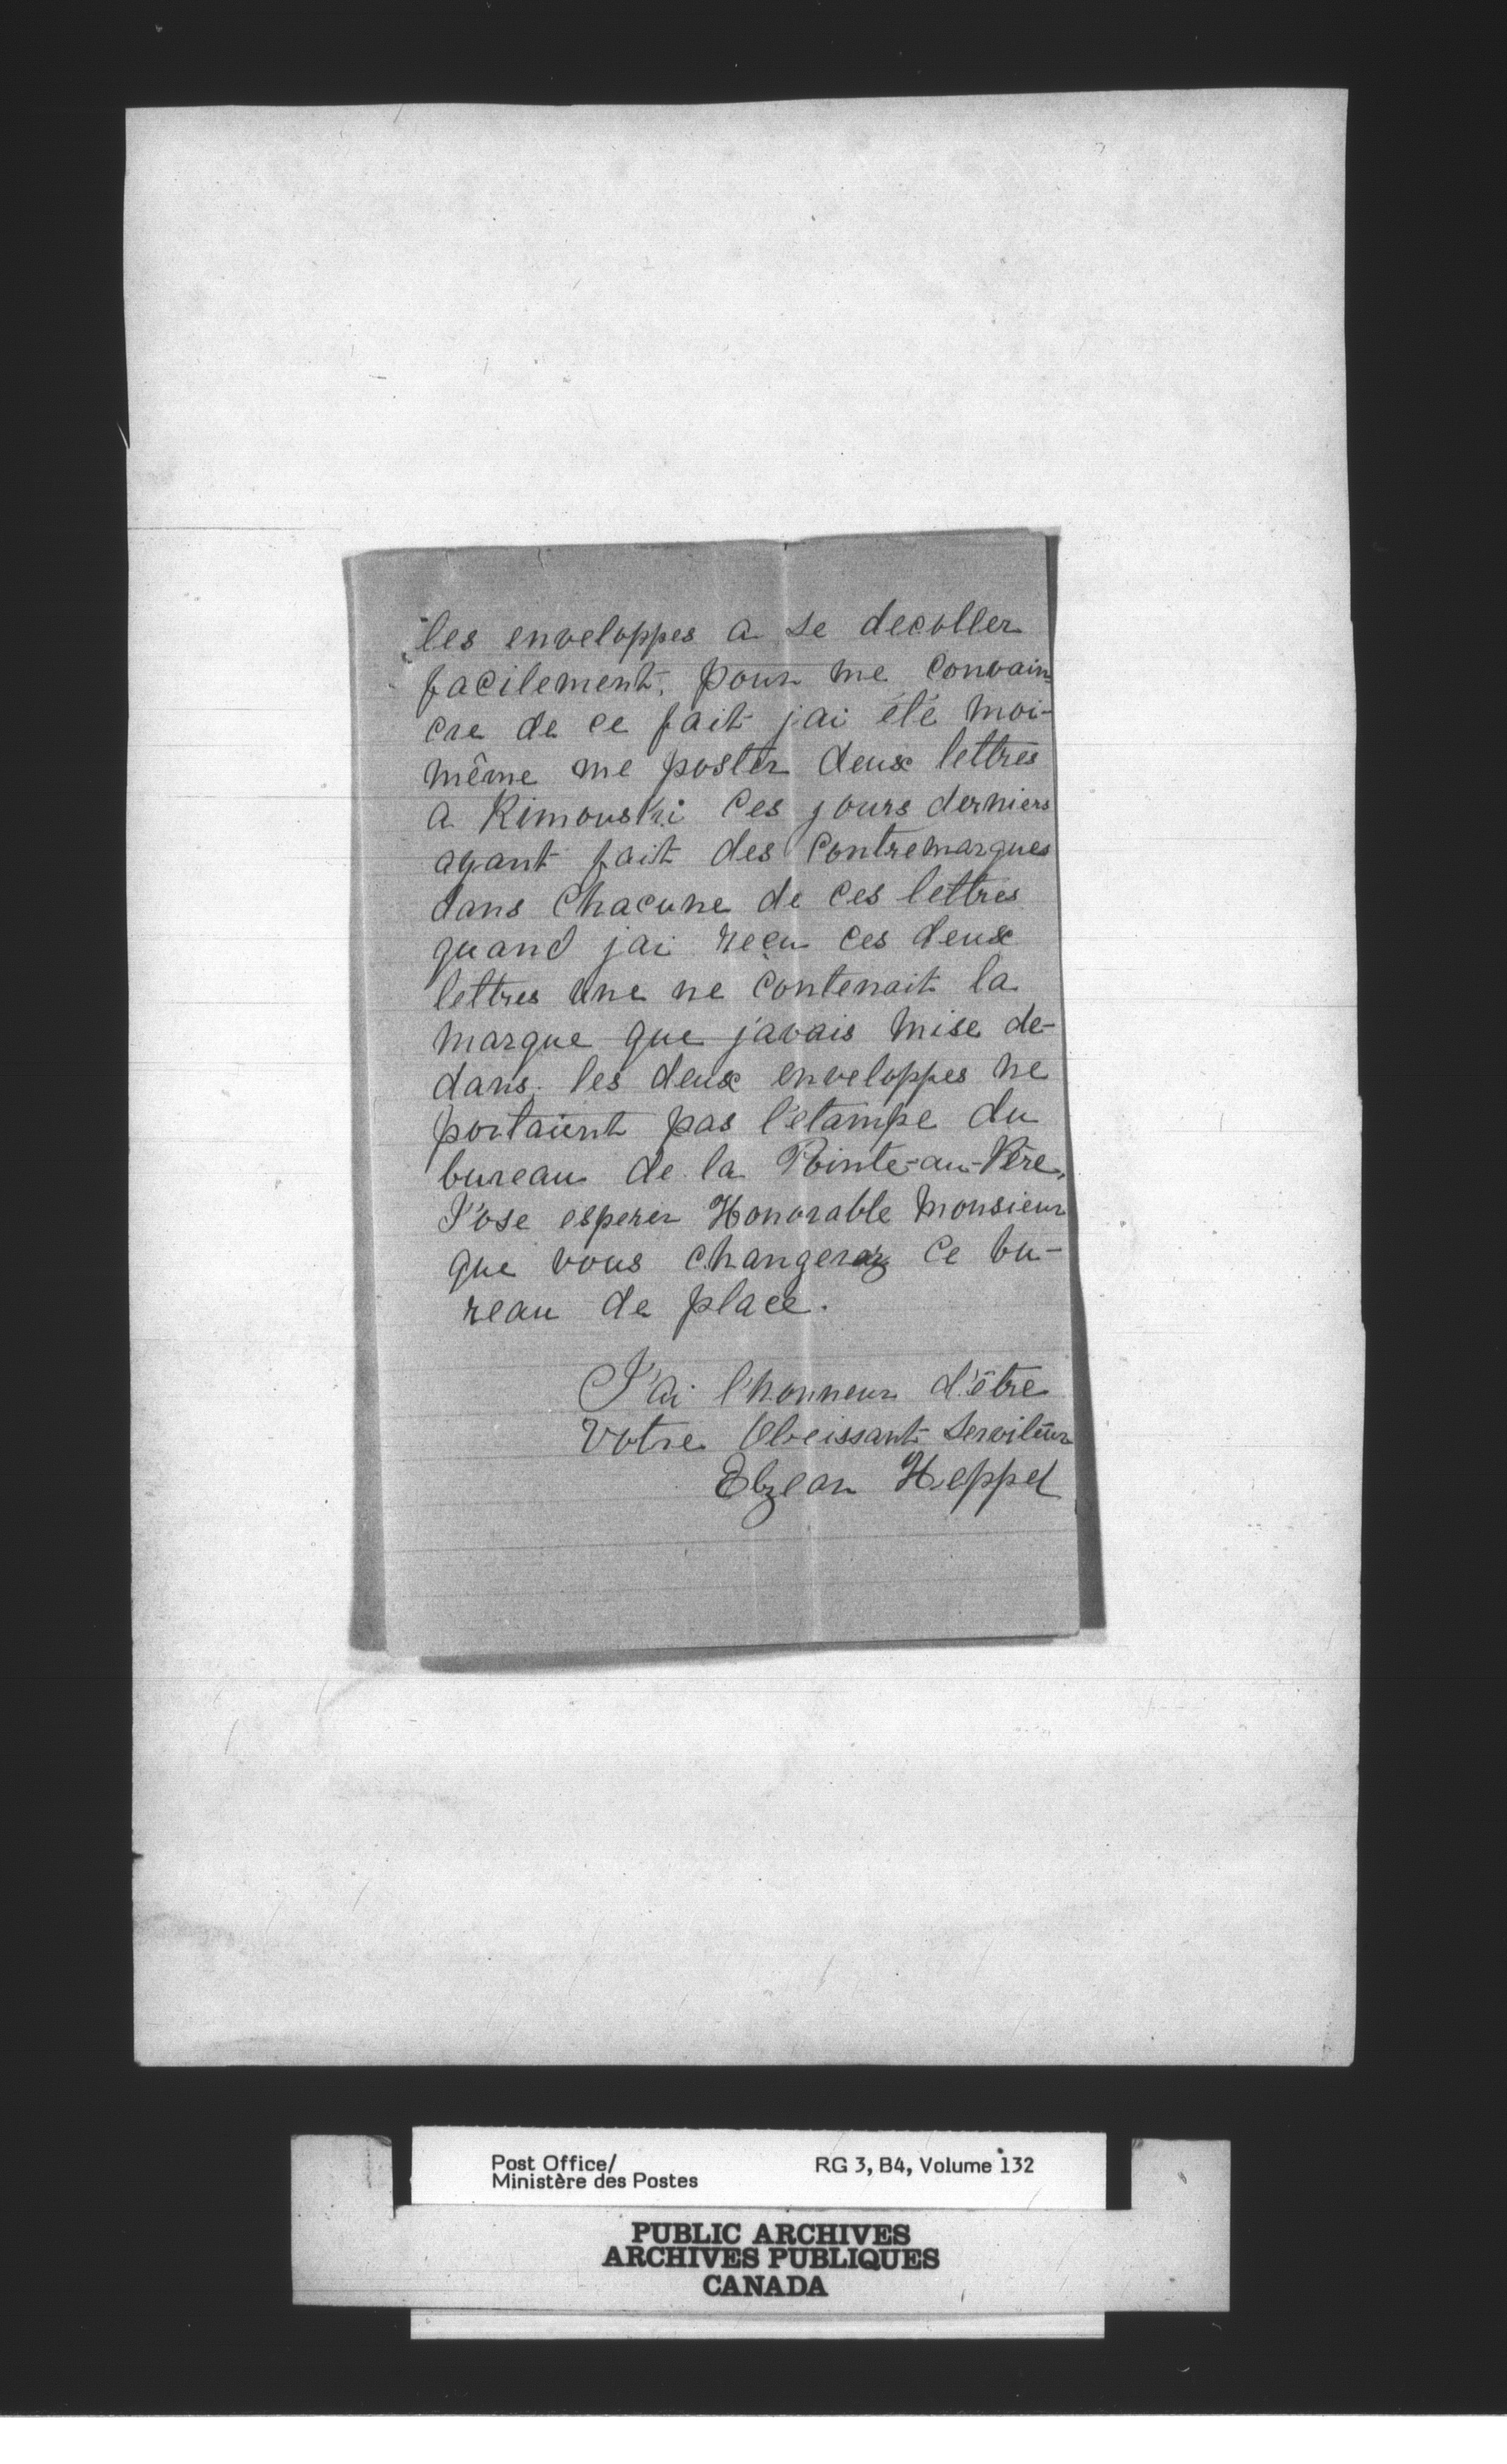 les enveloppes a se decoller
facilement. pour me convain
cre de ce fait jai été moi-
même me poster deux lettres
a Rimouski ces jours derniers
ayant fait des contremarques
dans chacune de ces lettres
quand jai reçu ces deux
lettres une ne contenait la
marque que j'avais mise de-
dans. les deux enveloppes ne
portaient pas l'étampe du
bureau de la Pointe-au-Père,
J'ose esperer Honorable Monsieur
que vous changerez ce bu-
reau de place.
J'ai l'honneur d'être
Votre Obeissant Serviteur
Elzear Heppel
Post Office/ RG 3, B4, Volume 132
Ministère des Postes
PUBLIC ARCHIVES
ARCHIVES PUBLIQUES
CANADA